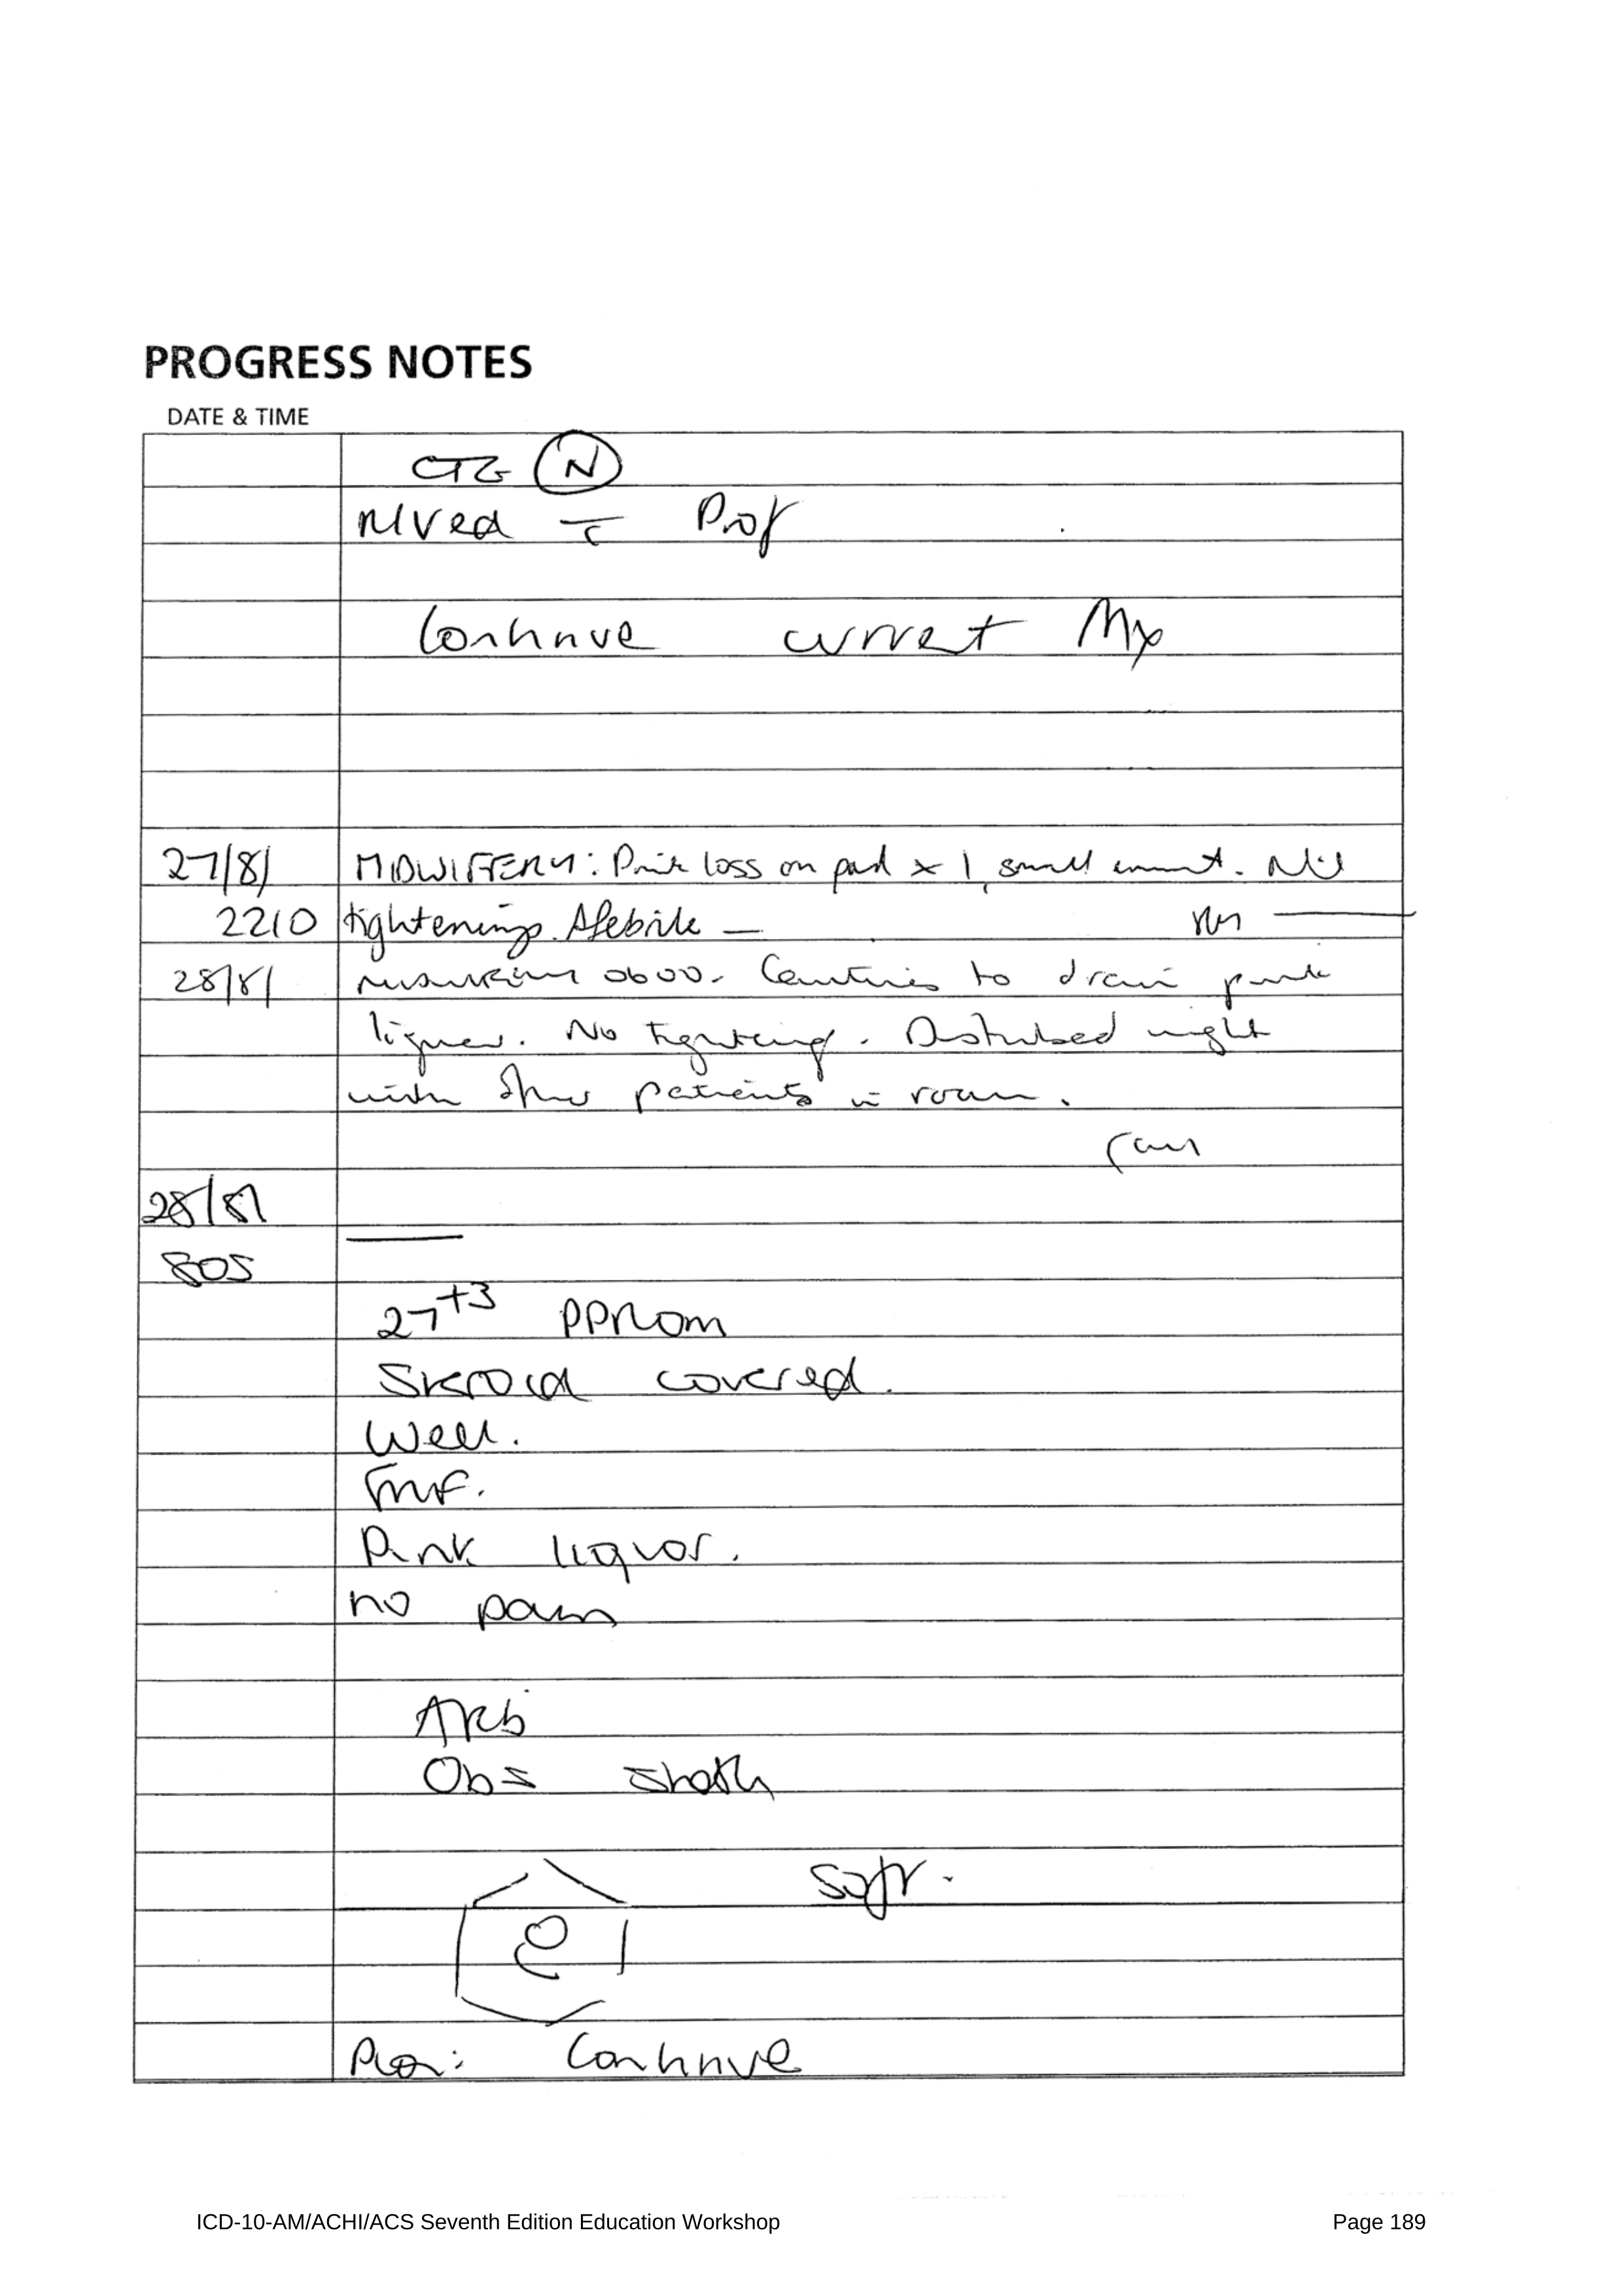 PROGRESS NOTES
DATE & TIME
CTG N
R/Ved c Prof
Continue current Mx
27/8/ MIDWIFFERY: Pink loss on pad x 1, small amount. Nil
2210 tightenings. Afebrile —
28/8/ 0600. Continues to drain pink
liquor. No tightening. Disturbed night
with other patients in room.
28/8/
805
27+3 PPROM
Steroid covered.
Well.
FMF.
Pink liquor.
no pain
Obs stable
Soft.
Plan: Continue
ICD-10-AM/ACHI/ACS Seventh Edition Education Workshop Page 189